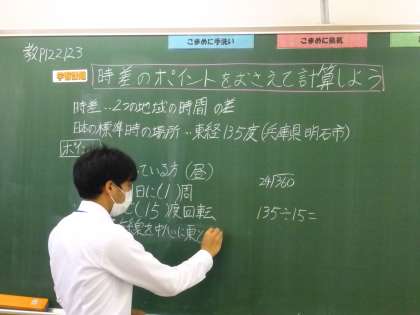 こまめに手洗い
こまめに換気
教P122,123
学習課題
時差のポイントをおさえて計算しよう
時差‥2つの地域の時間の差
日本の標準時の場所‥東経135度(兵庫県明石市)
ポイ
ている方(昼)
日に(1)周
24√360
(15)度回転
135÷15=
線を中心に東